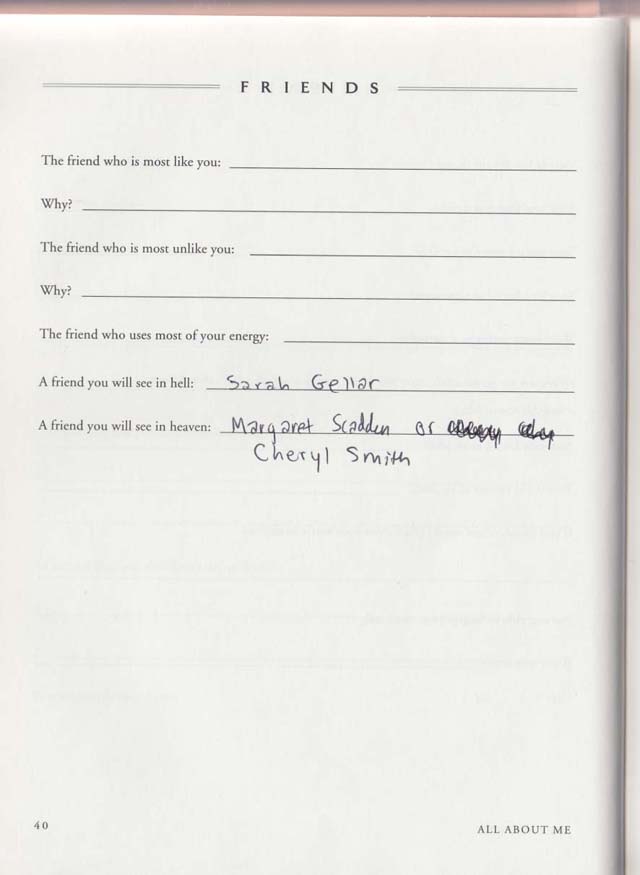 FRIENDS
The friend who is most like you:
Why?
The friend who is most unlike you:
Why?
The friend who uses most of your energy:
A friend you will see in hell: Sarah Gellar
A friend you will see in heaven: Margaret Scadden or
Cheryl Smith
40
ALL ABOUT ME